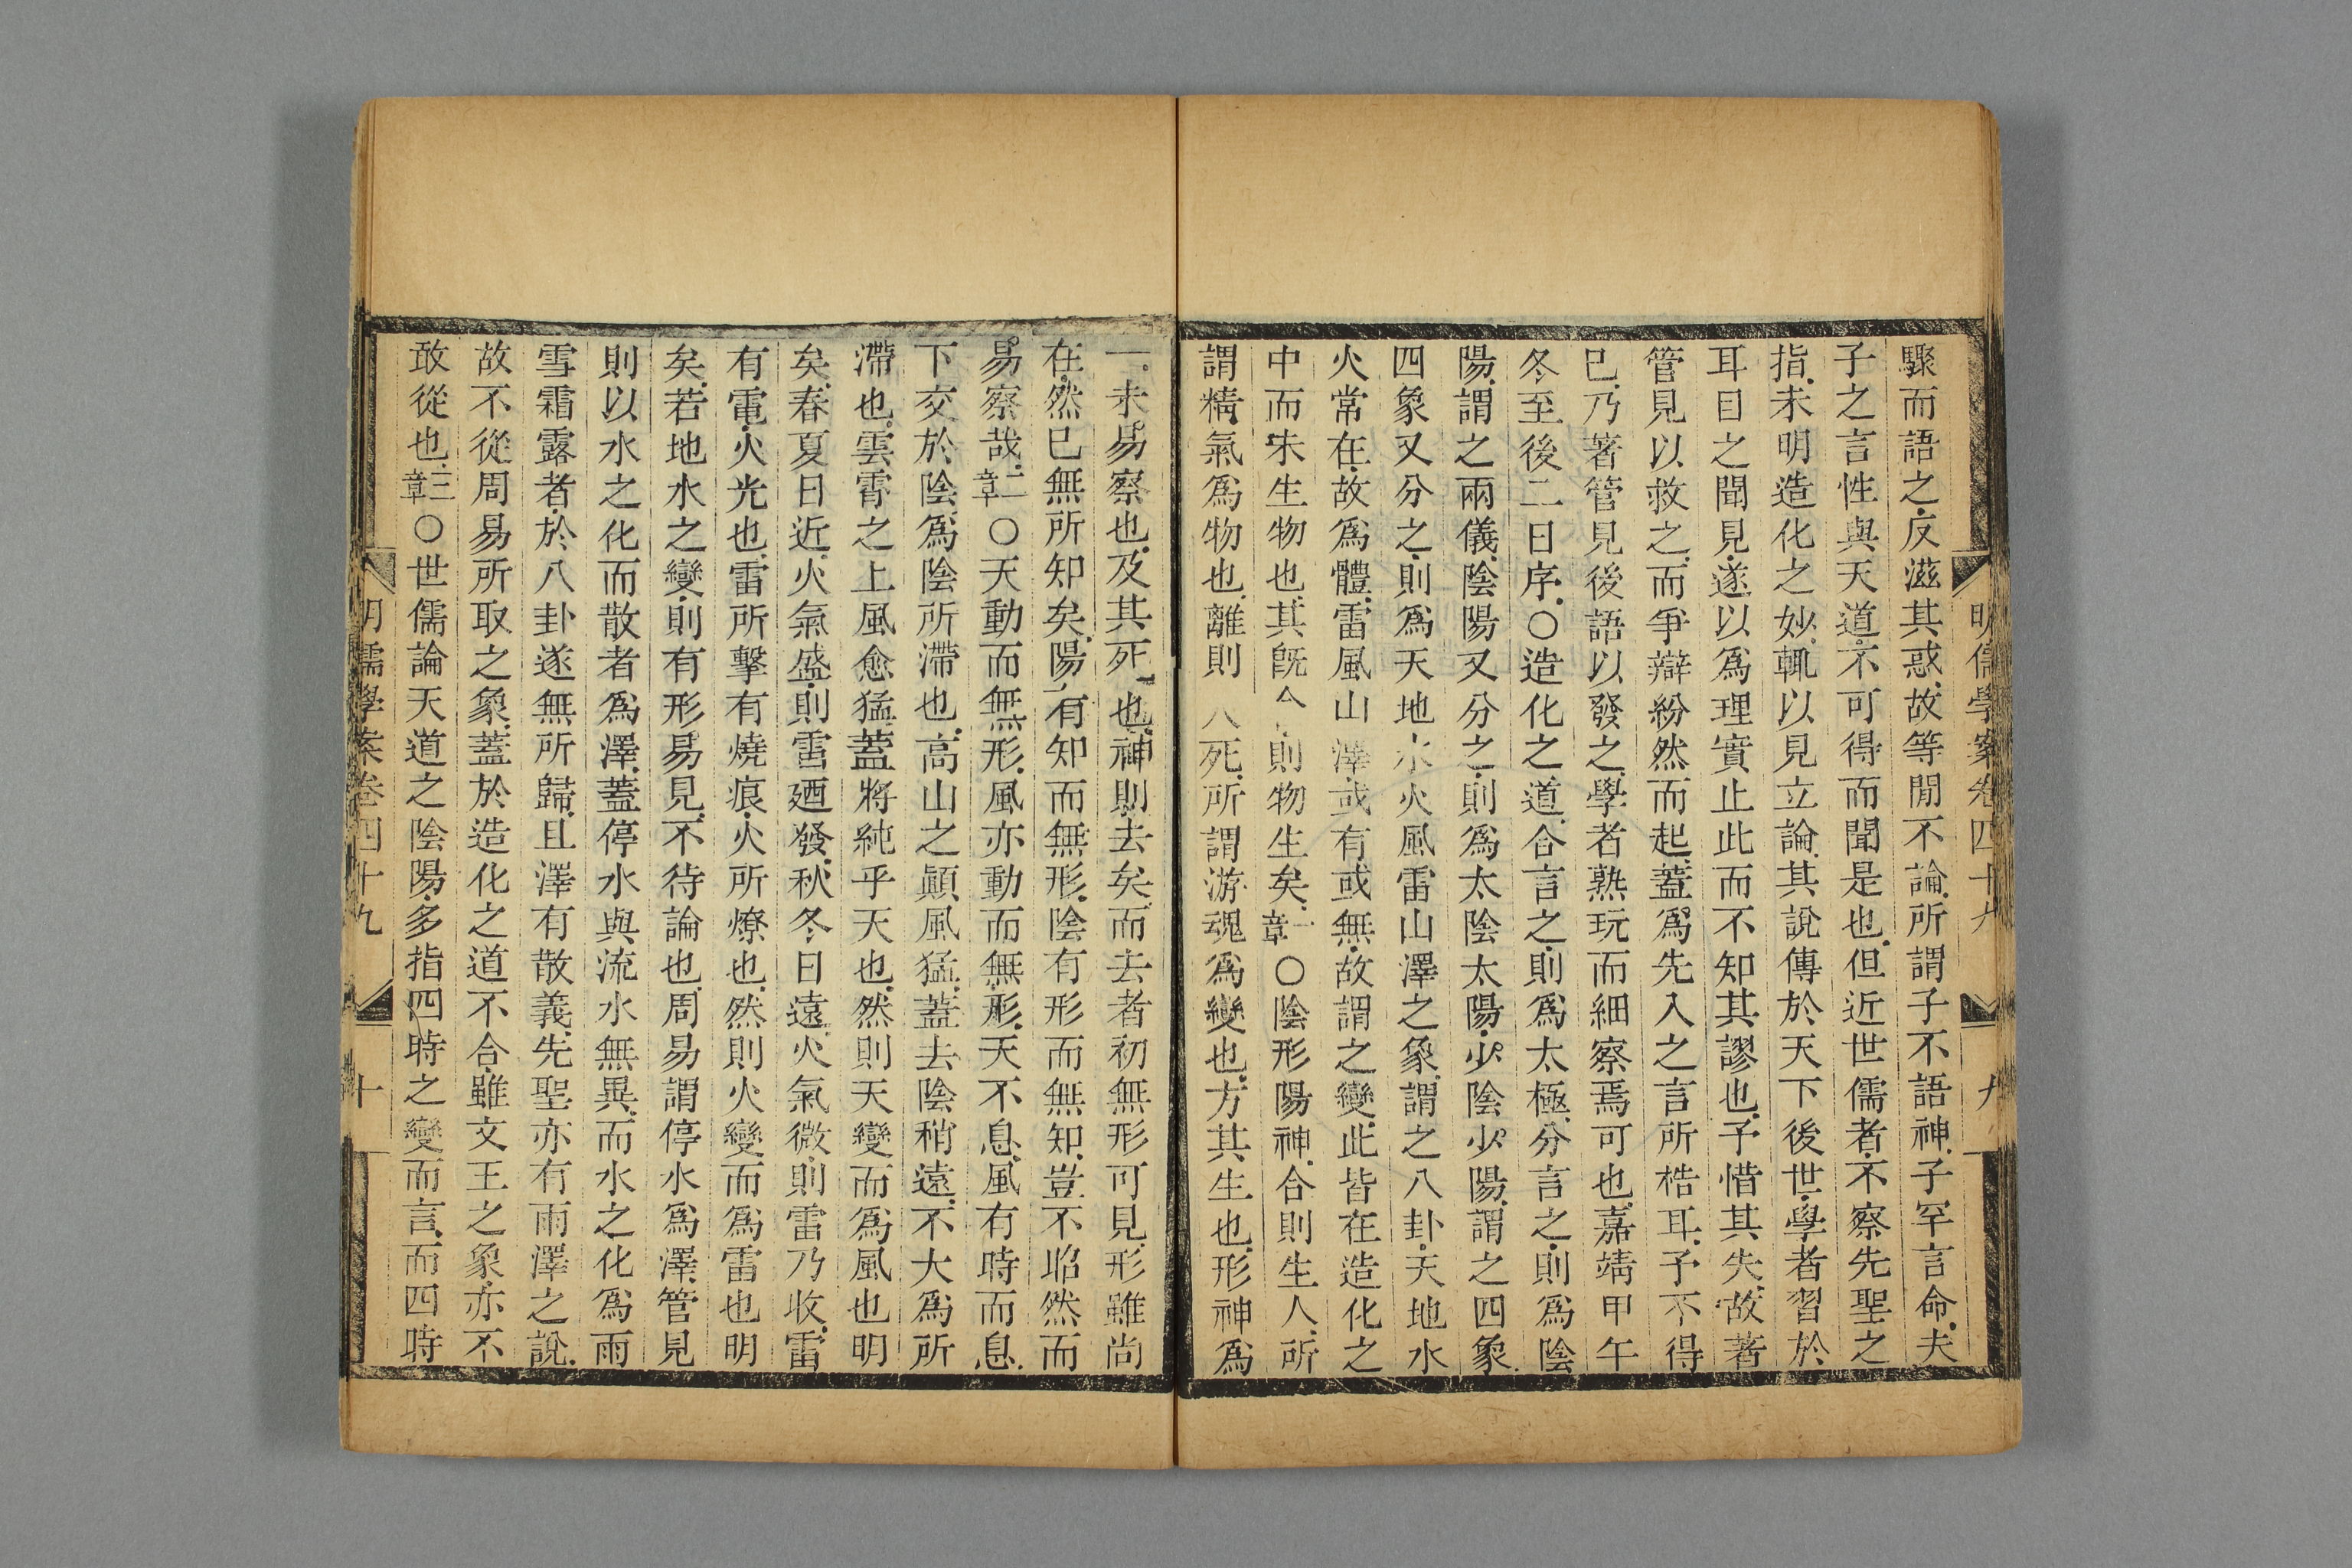 明儒學案卷四十九
九
驟而語之反滋其惑故等閒不論所謂子不語神子罕言命夫
子之言性與天道不可得而聞是也但近世儒者不察先聖之
指未明造化之妙輒以見立論其說傳於天下後世學者習於
耳目之聞見遂以爲理實止此而不知其謬也予惜其失故著
管見以救之而爭辯紛然而起蓋爲先入之言所梏耳予不得
已乃著管見後語以發之學者熟玩而細察焉可也嘉靖甲午
冬至後二日序○造化之道合言之則爲太極分言之則爲陰
陽謂之兩儀陰陽又分之則爲太陰太陽少陰少陽謂之四象
四象又分之則爲天地水火風雷山澤之象謂之八卦天地水
火常在故爲體雷風山澤或有或無故謂之變此皆在造化之
中而未生物也其旣合則物生矣一章○陰形陽神合則生人所
謂精氣爲物也離則人死所謂游魂爲變也方其生也形神爲
一未易察也及其死也神則去矣而去者初無形可見形雖尚
在然已無所知矣陽有知而無形陰有形而無知豈不昭然而
易察哉二章○天動而無形風亦動而無形天不息風有時而息
下交於陰爲陰所滯也高山之顚風猛蓋去陰稍遠不大爲所
滯也雲霄之上風愈猛蓋將純乎天也然則天變而爲風也明
矣春夏日近火氣盛則雷廼發秋冬日遠火氣微則雷乃收雷
有電火光也雷所擊有燒痕火所燎也然則火變而爲雷也明
矣若地水之變則有形易見不待論也周易謂停水爲澤管見
則以水之化而散者爲澤蓋停水與流水無異而水之化爲雨
雪霜露者於八卦遂無所歸且澤有散義先聖亦有雨澤之說
故不從周易所取之象蓋於造化之道不合雖文王之象亦不
敢從也三章○世儒論天道之陰陽多指四時之變而言而四時
明儒學案卷四十九
十